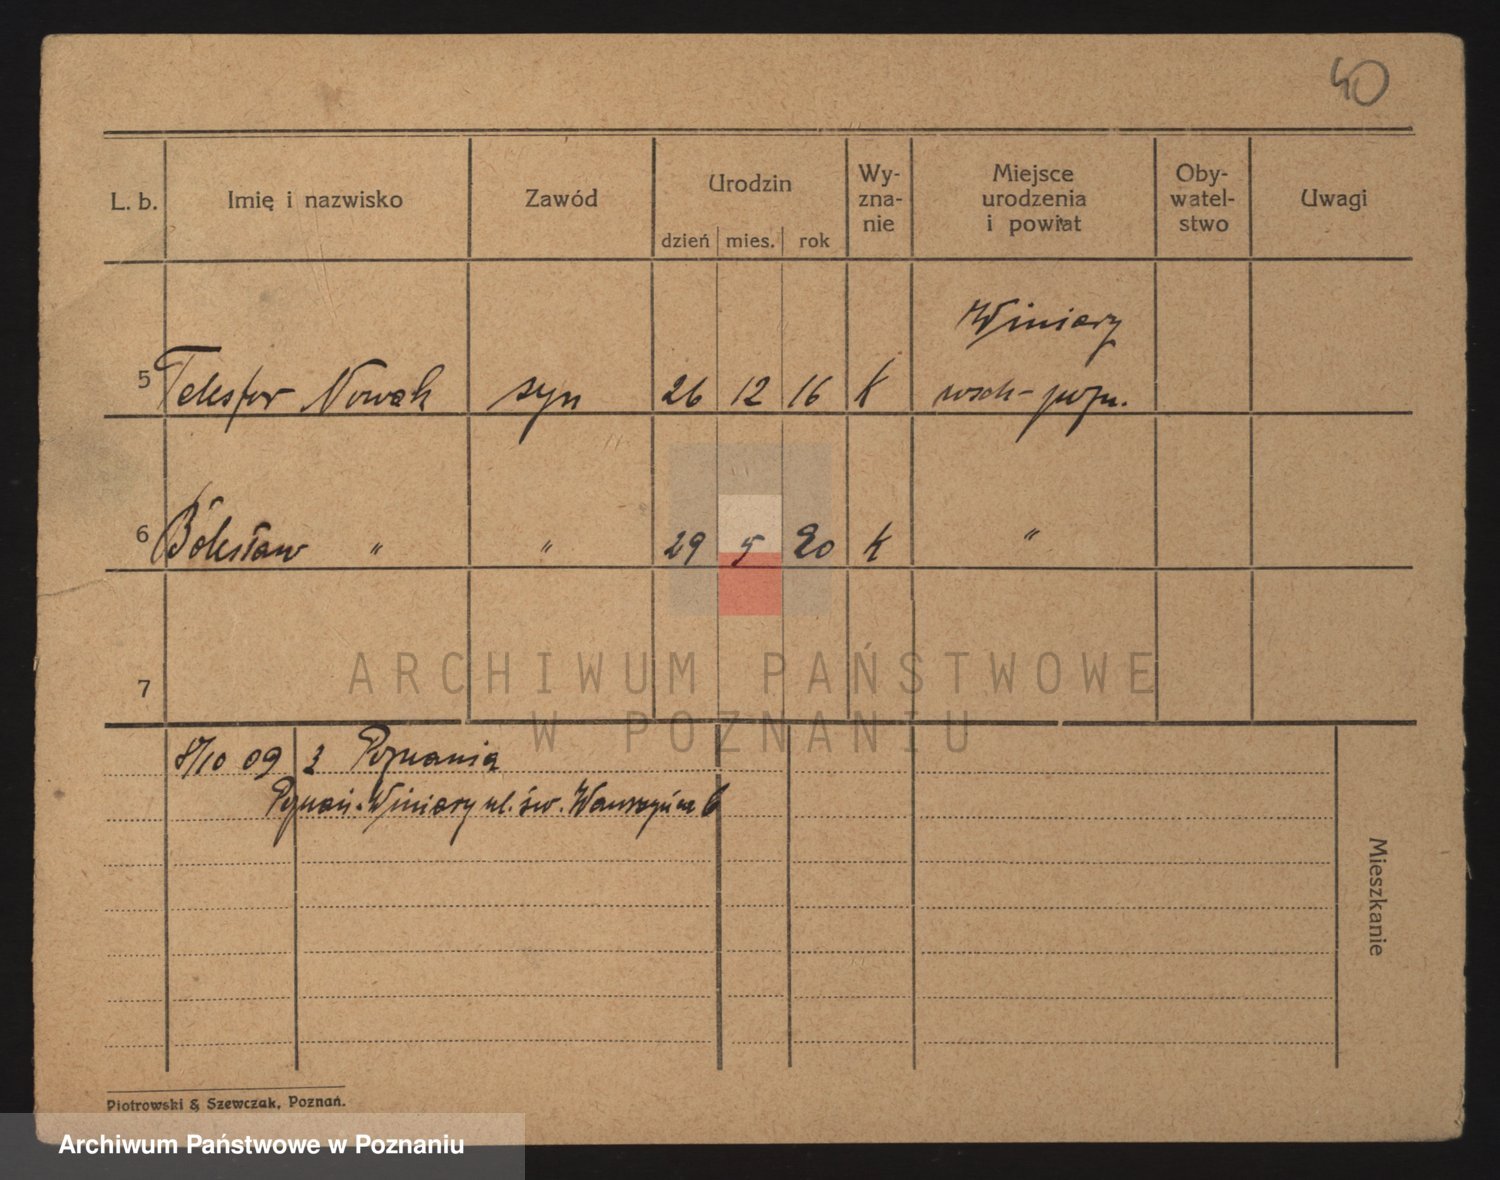 40
L. b. Imię i nazwisko Zawód Urodzin Wy-zna-nie Miejsce urodzenia i powiat Oby-watel-stwo Uwagi
dzień mies. rok
Winiary
5 Telesfor Nowak syn 26 12 16 K wsch-pozn.
6 Bolesław " " 29 5 20 K "
7
ARCHIWUM PAŃSTWOWE
W POZNANIU
8/10 09 z Poznania
Poznań-Winiary ul. św. Wawrzyńca 6
Mieszkanie
Piotrowski & Szewczak, Poznań.
Archiwum Państwowe w Poznaniu